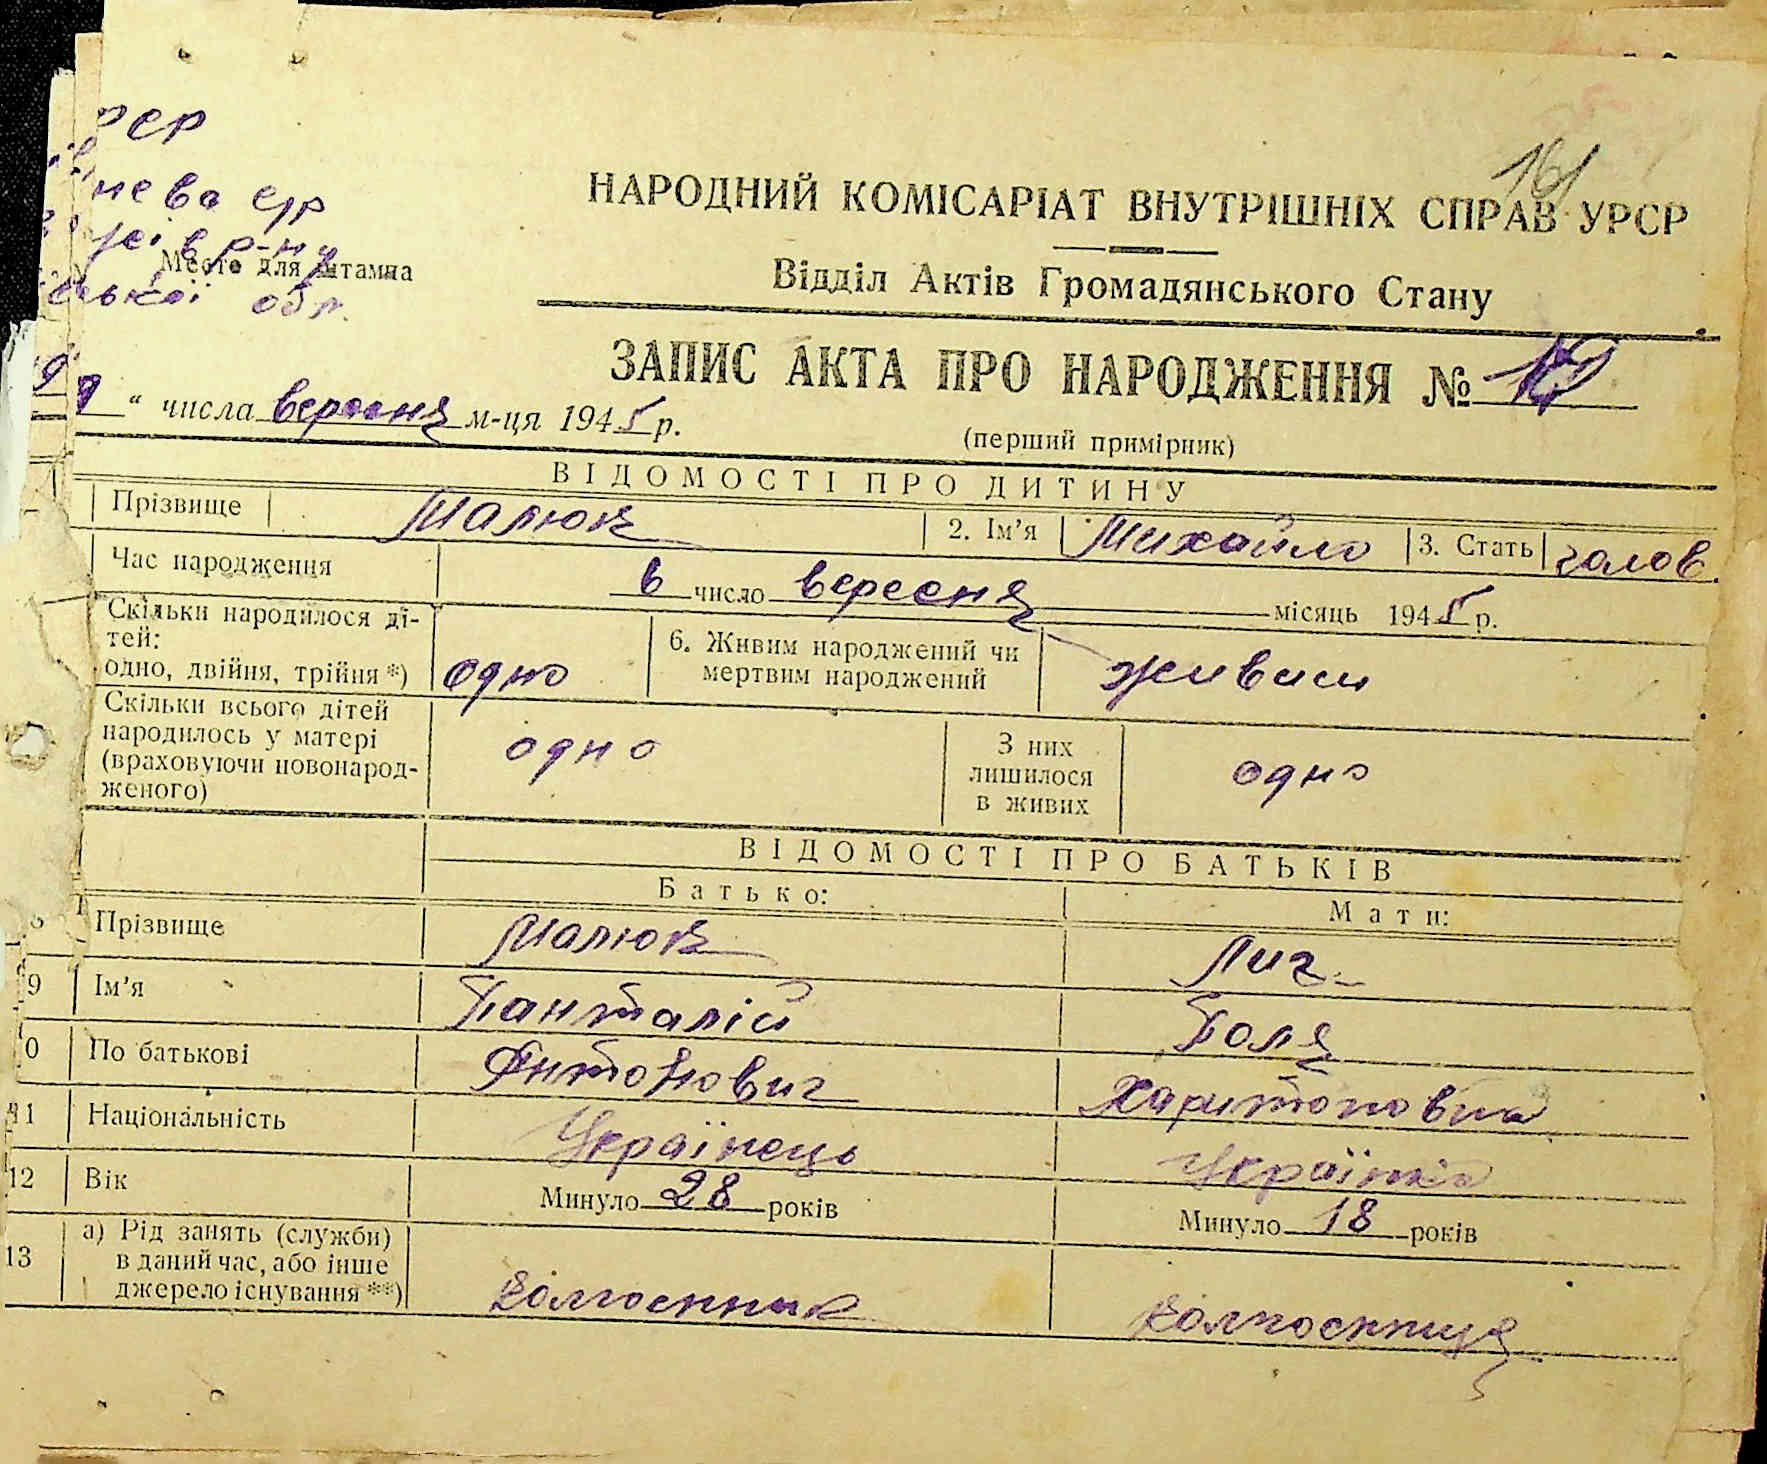 161
РСР
нева с/р
р-ну
Место для штампа
ської обл.
НАРОДНИЙ КОМІСАРІАТ ВНУТРІШНІХ СПРАВ УРСР
Відділ Актів Громадянського Стану
ЗАПИС АКТА ПРО НАРОДЖЕННЯ №
“ числа вересня м-ця 1945 р.
(перший примірник)
ВІДОМОСТІ ПРО ДИТИНУ
Прізвище Малюк 2. Ім'я Михайло 3. Стать голов.
Час народження 6 число вересня місяць 1945 р.
Скільки народилося ді-
тей:
одно, двійня, трійня *) одно
6. Живим народжений чи
мертвим народжений живим
Скільки всього дітей
народилось у матері
(враховуючи новонарод-
женого) одно
З них
лишилося
в живих одно
ВІДОМОСТІ ПРО БАТЬКІВ
Батько: Мати:
Прізвище Малюк Лич
9 Ім'я Панталій Поля
0 По батькові Антонович Харитоновна
11 Національність Українець Українка
12 Вік Минуло 28 років Минуло 18 років
13 а) Рід занять (служби)
в даний час, або інше
джерело існування **) колгоспник колгоспниця